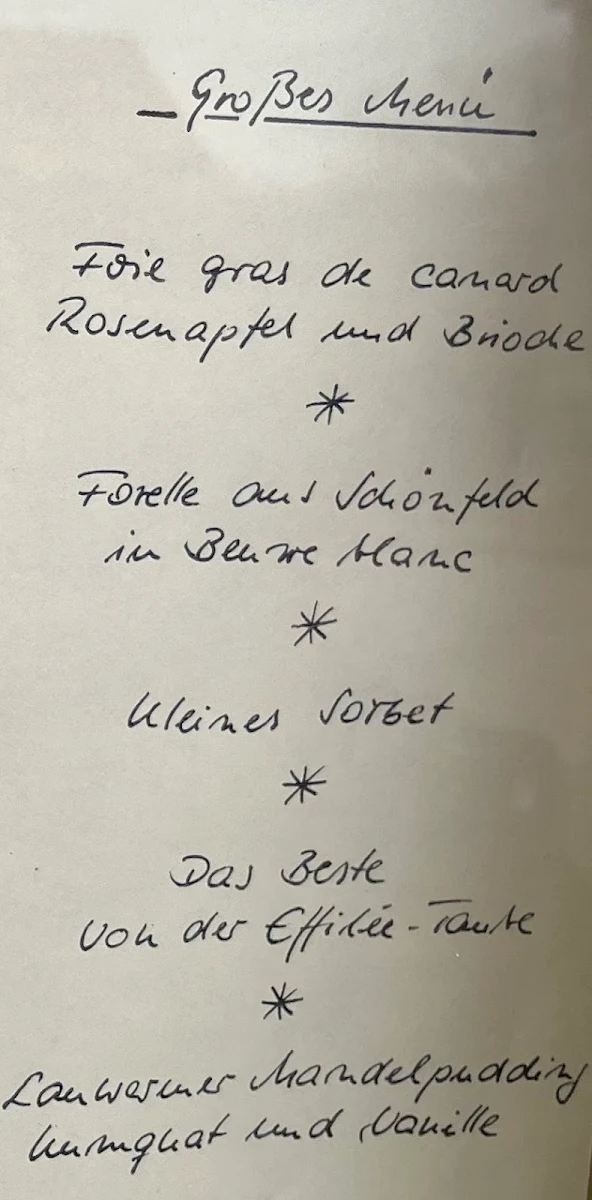 Großes Menü
Foie gras de canard
Rosenapfel und Brioche
*
Forelle aus Schönfeld
in Beurre blanc
*
Kleines Sorbet
*
Das Beste
von der Effilée-Taube
*
Lauwarmer Mandelpudding
Kumquat und Vanille